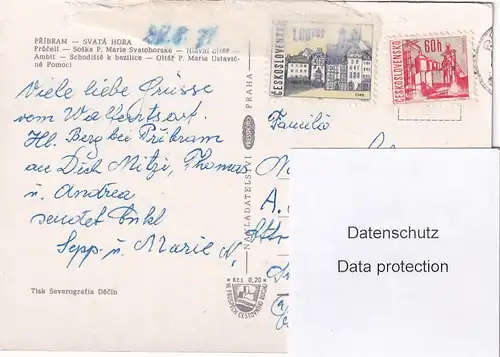 PŘÍBRAM — SVATÁ HORA
Průčelí — Soška P. Marie Svatohorské — Hlavní oltář —
Ambit — Schodiště k bazilice — Oltář P. Marie Ustavič-
né Pomoci
Viele liebe Grüsse
vom Wallfahrtsort
Hl. Berg bei Příbram
an Dich Mitzi, Thomas
u. Andrea
sendet Onkl
Sepp u. Marie N.
Tisk Severografia Děčín
NAKLADATELSTVÍ PRESSFOTO PRAHA
Kčs 0,70
VE PROSPĚCH CESTOVNÍHO RUCHU
1.00 Kčs
ČESKOSLOVENSKO
60h
ČESKOSLOVENSKO
Familie
A.
Datenschutz
Data protection